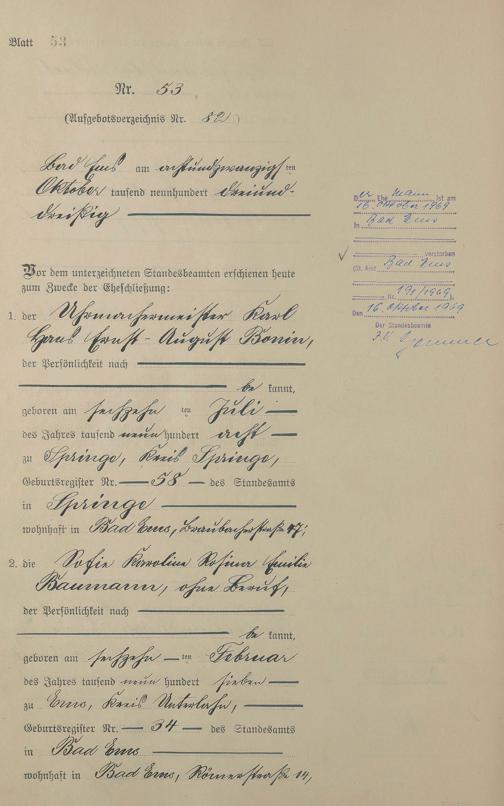 Blatt 53
Nr. 53
(Aufgebotsverzeichnis Nr. 82)
Bad Ems am achtundzwanzigs ten
Oktober tausend neunhundert dreiund-
dreißig
Vor dem unterzeichneten Standesbeamten erschienen heute
zum Zwecke der Eheschließung:
1. der Uhrmachermeister Karl
Hans Ernst-August Bonin,
der Persönlichkeit nach
be kannt,
geboren am sechzehn ten Juli
des Jahres tausend neun hundert acht
zu Springe, Kreis Springe,
Geburtsregister Nr. 58 des Standesamts
in Springe
wohnhaft in Bad Ems, Braubacherstraße 47;
2. die Sofie Karoline Rosina Emilie
Baumann, ohne Beruf,
der Persönlichkeit nach
be kannt,
geboren am sechzehn ten Februar
des Jahres tausend neun hundert sieben
zu Ems, Kreis Unterlahn,
Geburtsregister Nr. 34 des Standesamts
in Bad Ems
wohnhaft in Bad Ems, Römerstraße 14,
Der Ehe Mann ist am
16. Oktober 1969
in Bad Ems
verstorben
(St. Amt Bad Ems
Nr. 191/1969)
Den 16. Oktober 1969
Der Standesbeamte